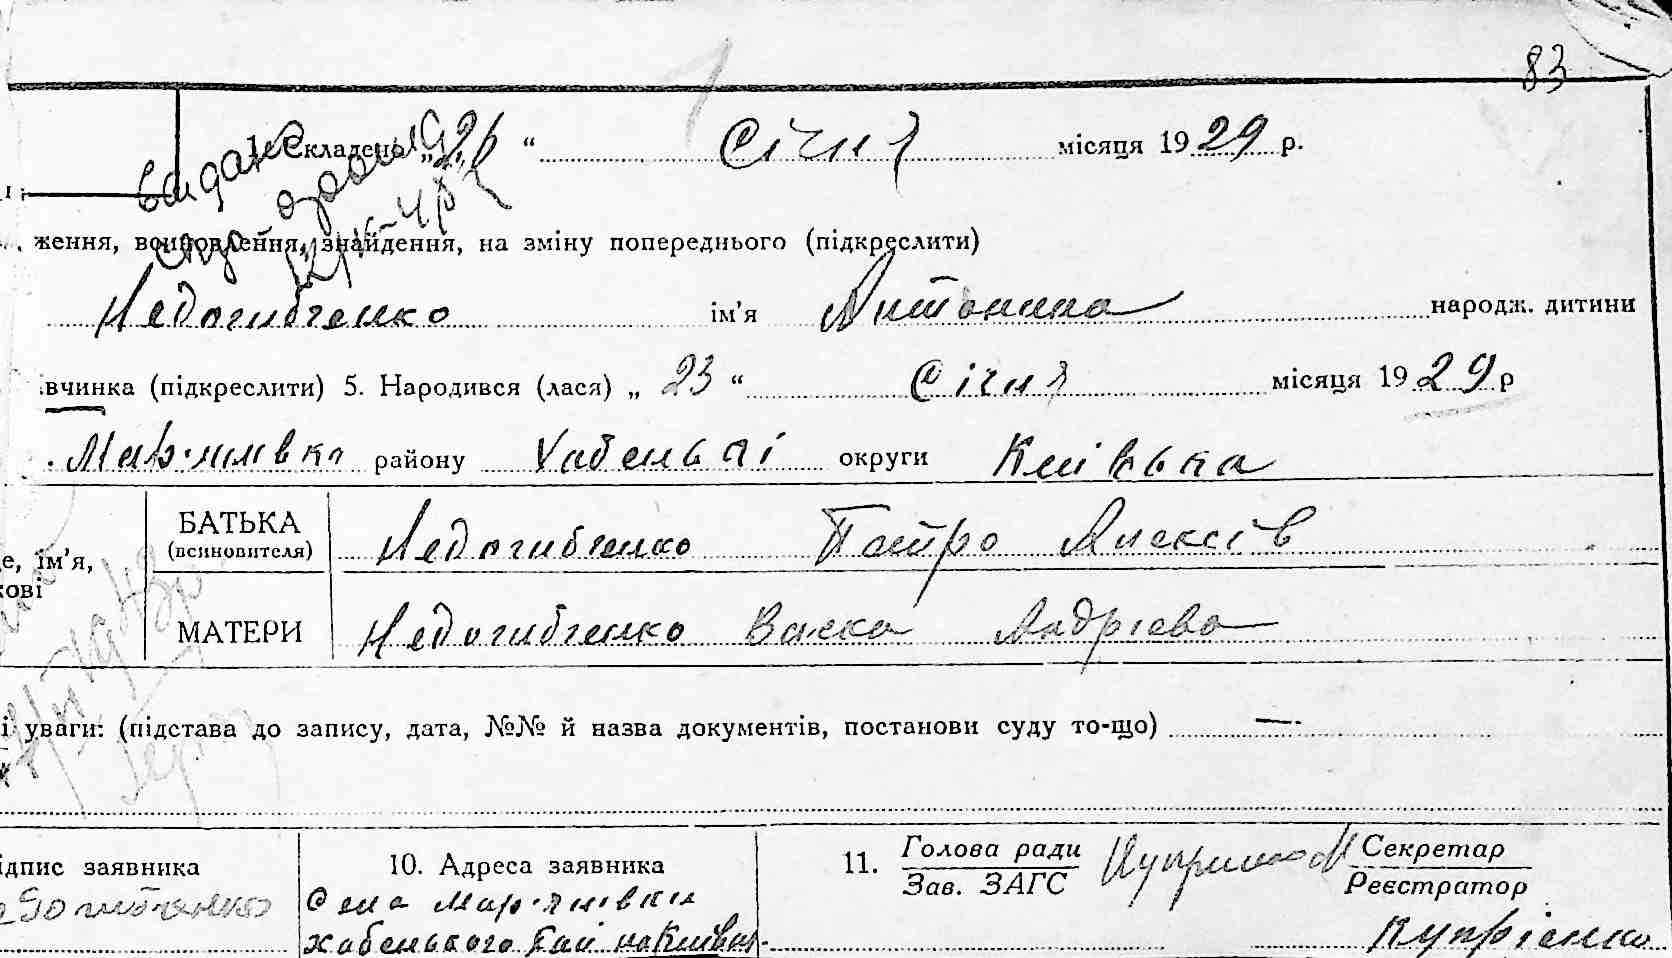 83
Складено „26“ Січня місяця 1929 р.
Видано
ження, всиновлення, знайдення, на зміну попереднього (підкреслити)
Недогибченко ім'я Антонина народж. дитини
вчинка (підкреслити) 5. Народився (лася) „23“ Січня місяця 1929 р
району Хабенькі округи Київська
БАТЬКА
(всиновителя)
Недогибченко Петро Алексів
е, ім'я,
кові
МАТЕРИ Недогибченко Васка Андрієва
і уваги: (підстава до запису, дата, №№ й назва документів, постанови суду то-що) —
ідпис заявника 10. Адреса заявника 11. Голова ради Секретар
Зав. ЗАГС Реєстратор
Села Мар'янівки
Хабенського
Купрієнко